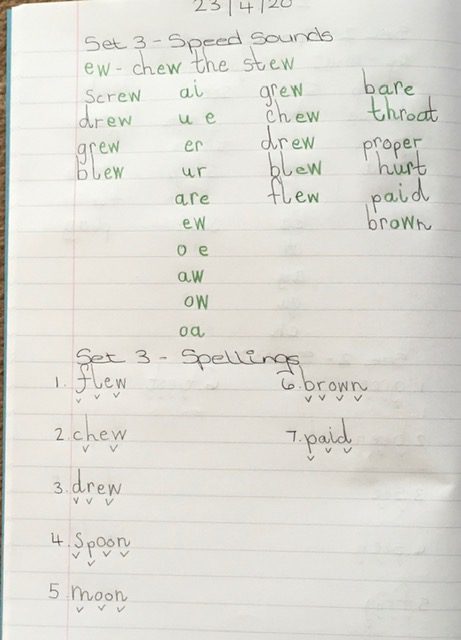 23/4/20
Set 3 - Speed Sounds
ew - chew the stew
screw ai grew bare
drew u e chew throat
grew er drew proper
blew ur blew hurt
are flew paid
ew brown
o e
aw
ow
oa
Set 3 - Spellings
1. flew 6. brown
2. chew 7. paid
3. drew
4. spoon
5 moon